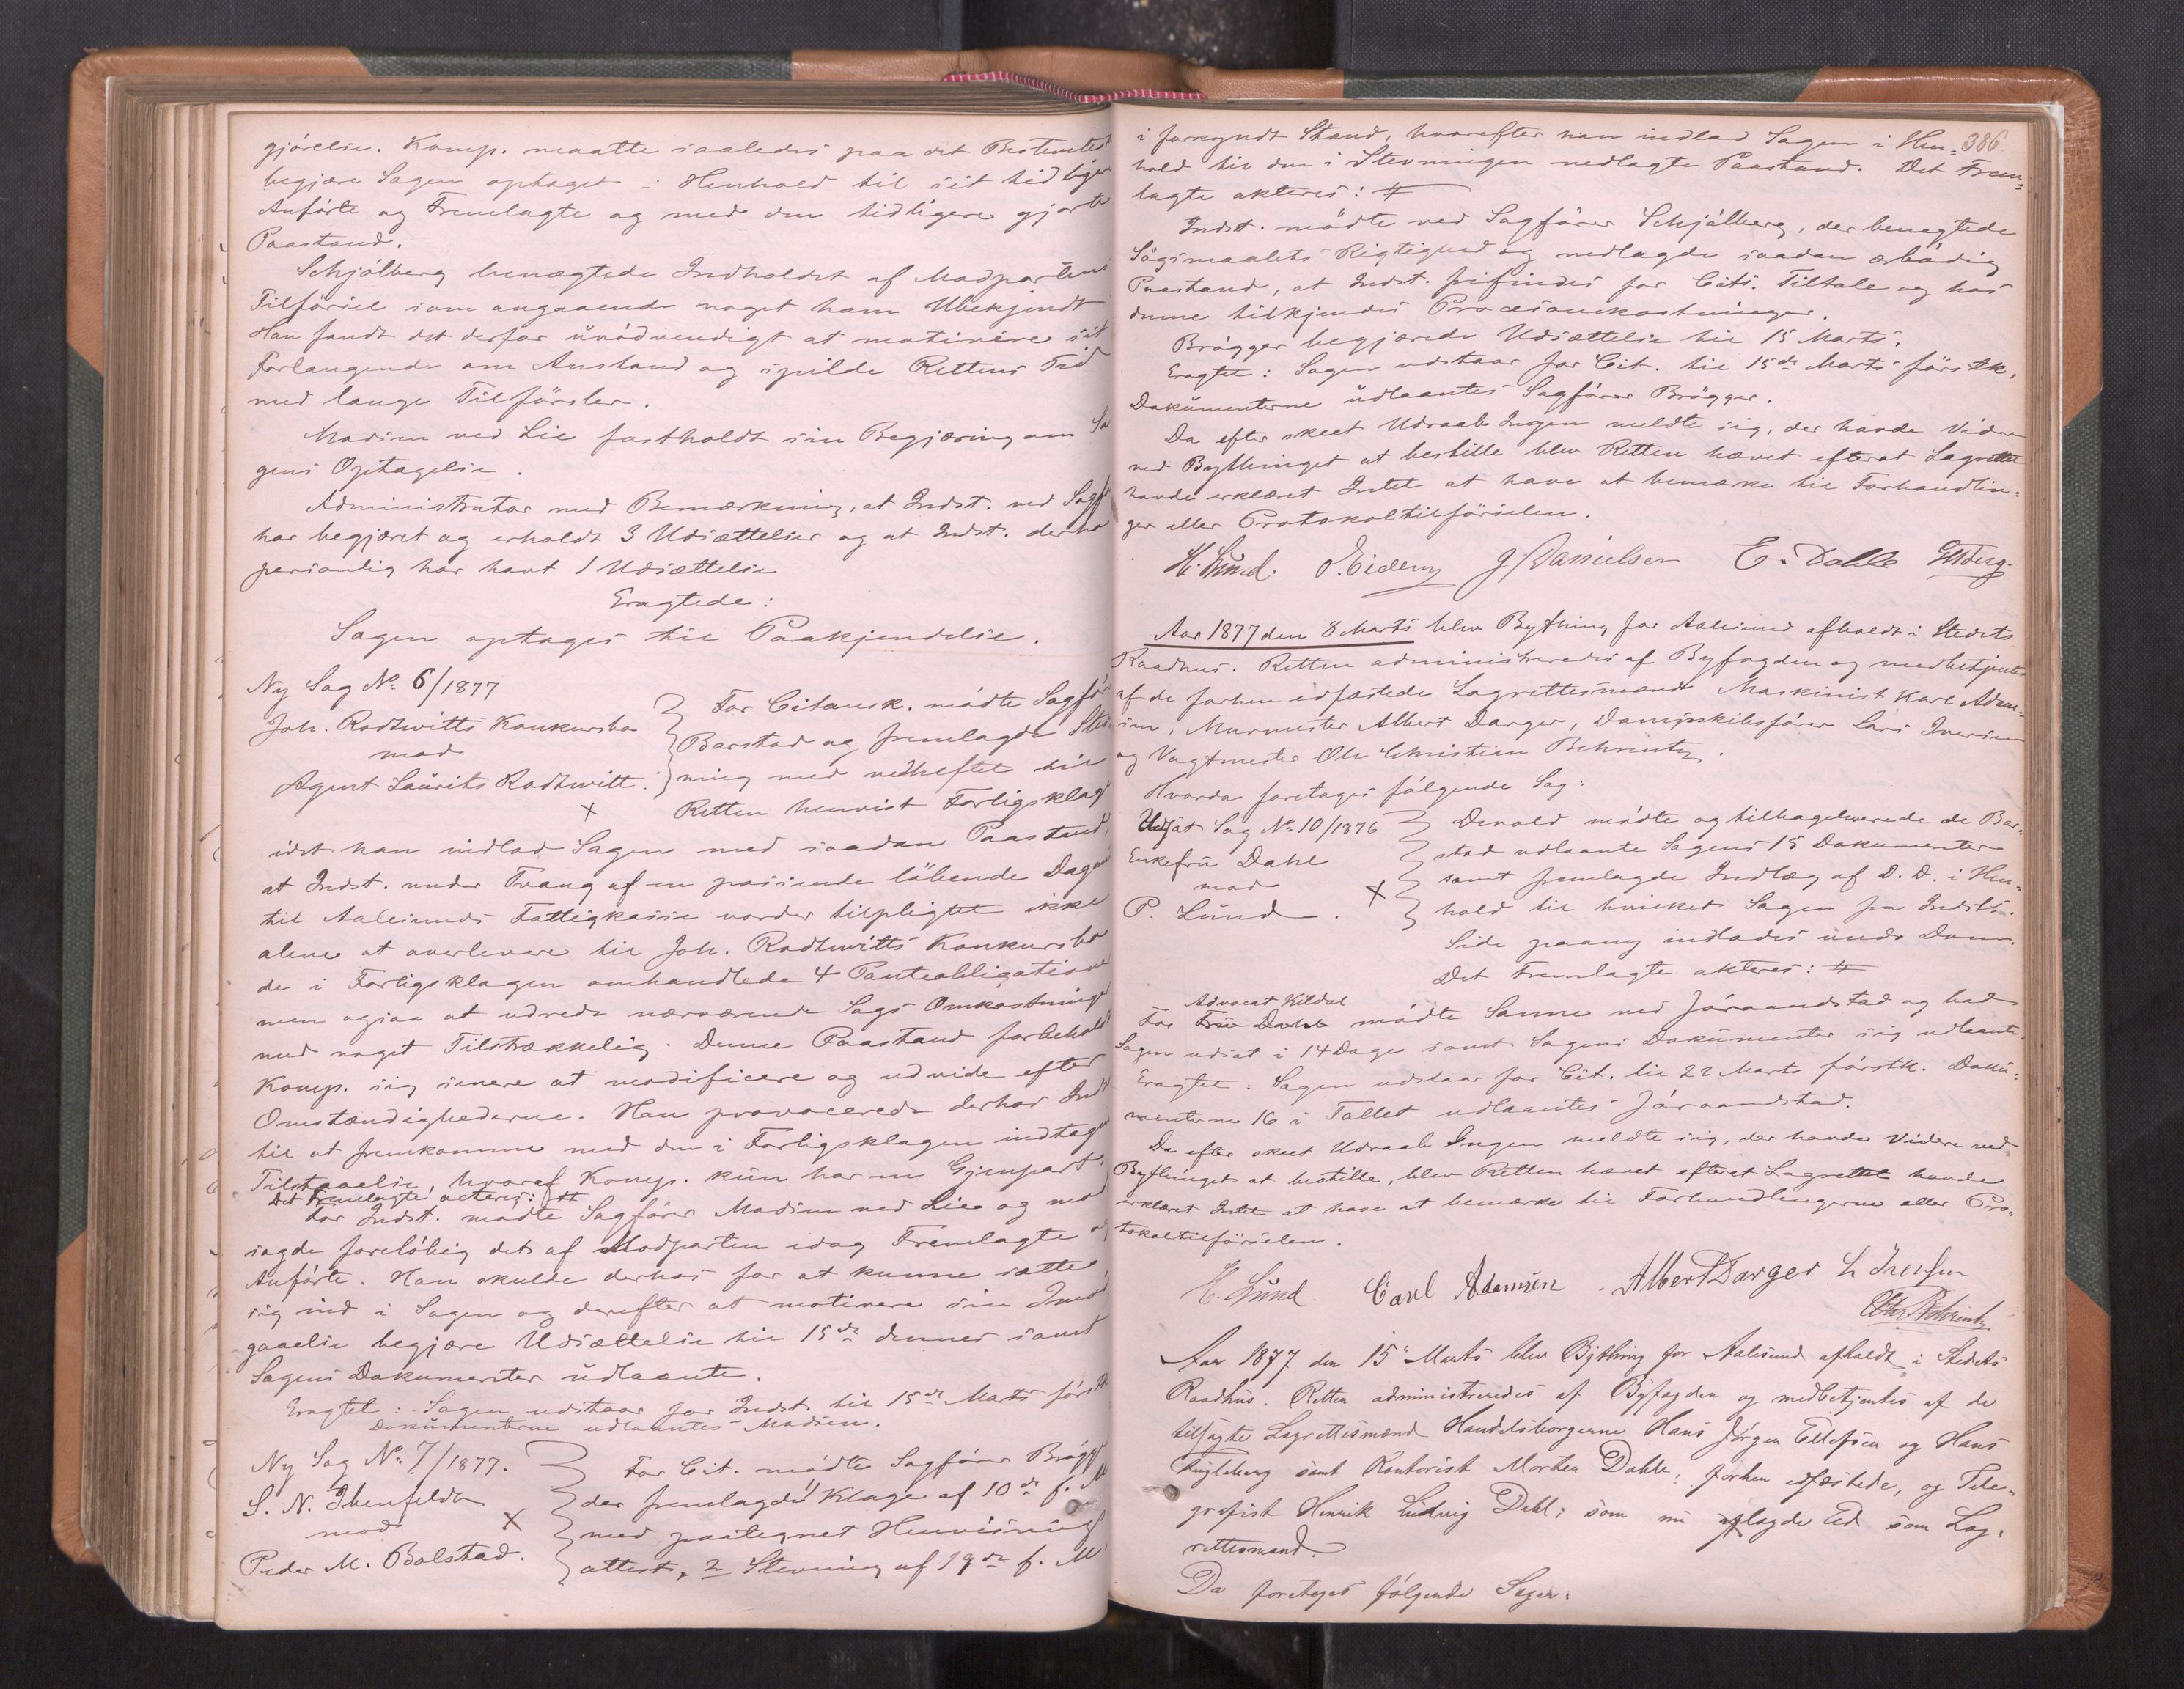 gjörelse. Komp. maatte saaledes paa det Bestemtest
begjære Sagen optaget i Henhold til sit tidliger
Anförte og Fremlagte og med den tidligere gjorte
Paastand.
Schjölberg benægtede Indholdet af Modpartens
Tilförsel som angaaende noget ham Ubekjendt
Han fandt det derfor unödvendigt at motivére sit
Forlangende om Anstand og spilde Rettens Tid
med lange Tilförsler.
Madsen ved Lie fastholdt sin Begjæring om Sa
gens Optagelse.
Administrator med Bemærkning, at Indst. ved Sagf
har begjæret og erholdt 3 Udsættelser og at Indst. derho
personlig har havt 1 Udsættelse
Eragtede:
Sagen optages til Paakjendelse.
Ny Sag No. 6/1877
Joh. Rodtwitts Konkursbo
mod
Agent Laurits Rodtwitt.
For Citansk. mödte Sagför
Barstad og fremlagde Stev
ning med vedheftet til
Retten henvist Forligsklag
idet han indlod Sagen med saadan Paastand,
at Indst. under Tvang af en passende löbende Dagm
til Aalesunds Fattigkasse vorder tilpligtet ikke
alene at overlevere til Joh. Rodtwitts Konkursbo
de i Forligsklagen omhandlede 4 Panteobligatione
men ogsaa at udrede nærværende Sags Omkostninge
med noget Tilstrækkelig. Denne Paastand forbeholdt
Komp. sig senere at modificere og udvide efter
Omstændighederne. Han provocerede derhos Indt
til at fremkomme med den i Forligsklagen indtagn
Tilstaaelse, hvoraf Komp. kun har en Gjenpart.
Det Fremlagte acteres: #
For Indst. mödte Sagförer Madsen ved Lie og mod
sagde foreløbig det af Modparten idag Fremlagte og
Anförte. Han skulde derhos for at kunne sætte
sig ind i Sagen og derefter at motivere sin Imö
gaaelse begjære Udsættelse til 15de dennes samt
Sagens Dokumenter udlaante.
Eragtet: Sagen udstaar for Indst. til 15de Marts förstk
Dokumenterne udlaantes Madsen.
Ny Sag No. 7/1877.
S. N. Ibenfeldt
mod
Peder M. Bolstad.
For Cit. mödte Sagförer Brögg
der fremlagde 1 Klage af 10de f. M
med paategnet Henvisnings
attest, 2 Stevning af 19de f. M
386.
i forkyndt Stand, hvorefter han indlod Sagen i Hen=
hold til den i Stevningen nedlagte Paastand. Det Frem=
lagte akteres: #
Indst. mödte ved Sagförer Schjölberg, der benegtede
Sögsmaalets Rigtighed og nedlagde saadan ærbödig
Paastand, at Indst. frifindes for Cits. Tiltale og hos
denne tilkjendes Procesomkostninger.
Brögger begjærede Udsættelse til 15 Marts.
Eragtet: Sagen udstaar for Cit. til 15de Marts först k.
Dokumenterne udlaantes Sagförer Brögger.
Da efter skeet Udraab Ingen meldte sig, der havde Videre
ved Bythinget at bestille blev Retten hævet efterat Lagrettet
havde erklæret Intet at have at bemærke til Forhandlin=
ger eller Protokoltilförselen.
H. Lund. P. Eidem J Danielsen E. Dahle
Aar 1877 den 8 Marts blev Bything for Aalesund afholdt i Stedets
Raadhus. Retten administreredes af Byfogden og medbetjentes
af de forhen edfæstede Lagrettesmænd Maskinist Karl Adam=
sen, Murmester Albert Darger, Dampskibsförer Lars Iversen
og Vagtmester Ole Christian Behrentz.
Hvorda foretages fölgende Sag:
Udsat Sag No. 10/1876
Enkefru Dahl
mod
P. Lund.
Devold mödte og tilbageleverede de Bar=
stad udlaante Sagens 15 Dokumenter
samt fremlagde Indlæg af D. D. i Hen=
hold til hvilket Sagen fra Indsts.
Side paany indlodes under Dom.
Det Fremlagte akteres: #
Advocat Kildal
For Fru Dahl mödte Samme ved Jöraandstad og bad
Sagen udsat i 14 Dage samt Sagens Dokumenter sig udlaante.
Eragtet: Sagen udstaar for Cit. til 22 Marts förstk. Doku=
menterne 16 i Tallet udlaantes Jöraandstad.
Da efter skeet Udraab Ingen meldte sig, der havde Videre ved
Bythinget at bestille, blev Retten hævet efterat Lagrettet havde
erklæret Intet at have at bemærke til Forhandlingerne eller Pro=
tokoltilförselen.
H. Lund. Carl Adamsen. Albert Darger L Iversen
Chr Behrentz.
Aar 1877 den 15de Marts blev Bything for Aalesund afholdt i Stedets
Raadhus. Retten administreredes af Byfogden og medbetjentes af de
tilsagte Lagrettesmænd Handelsborgerne Hans Jörgen Ellefsen og Hans
Engleberg samt Kontorist Morten Dahle, forhen edfæstede, og Tele=
grafist Henrik Ludvig Dahl; som nu aflagde Ed som Lag=
rettesmand.
Da foretages fölgende Sager.